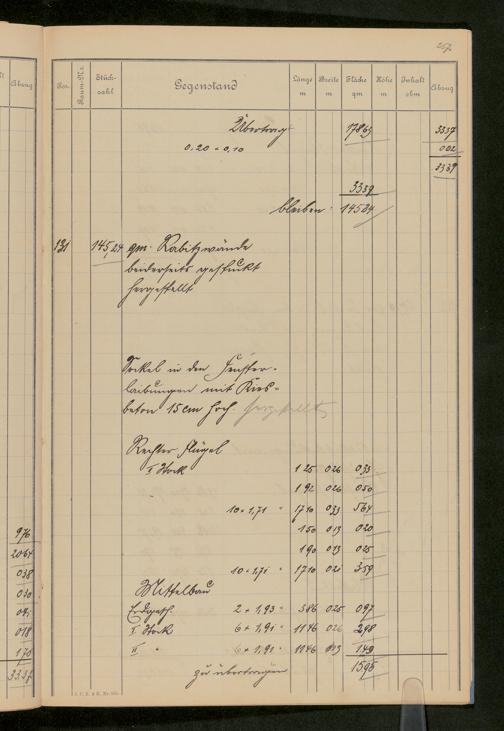 257
Pos.
Raum-Nr.
Stück-
zahl
Gegenstand
Länge
m
Breite
m
Fläche
qm
Höhe
m
Inhalt
cbm
Abzug
Übertrag 17863 3337
0.20 · 0,10 002
3339
3339
bleiben · 14524
131 145,24 qm. Rabitzwände
beiderseits geputzt
hergestellt
Sockel in den Fenster-
laibungen mit Kies-
beton 15 cm hoch. hergestellt
Rechter Flügel
I Stock 125 026 033
192 026 050
10 · 1,71 = 1710 033 564
150 013 020
190 013 025
10 · 1,71 = 1710 021 359
Mittelbau
Erdgesch. 2 · 1,93 = 386 025 097
I Stock 6 · 1,91 = 1146 026 298
II " 6 · 1,91 = 1146 013 149
zu übertragen 1595
Abzug
976
2064
038
030
041
018
170
3337